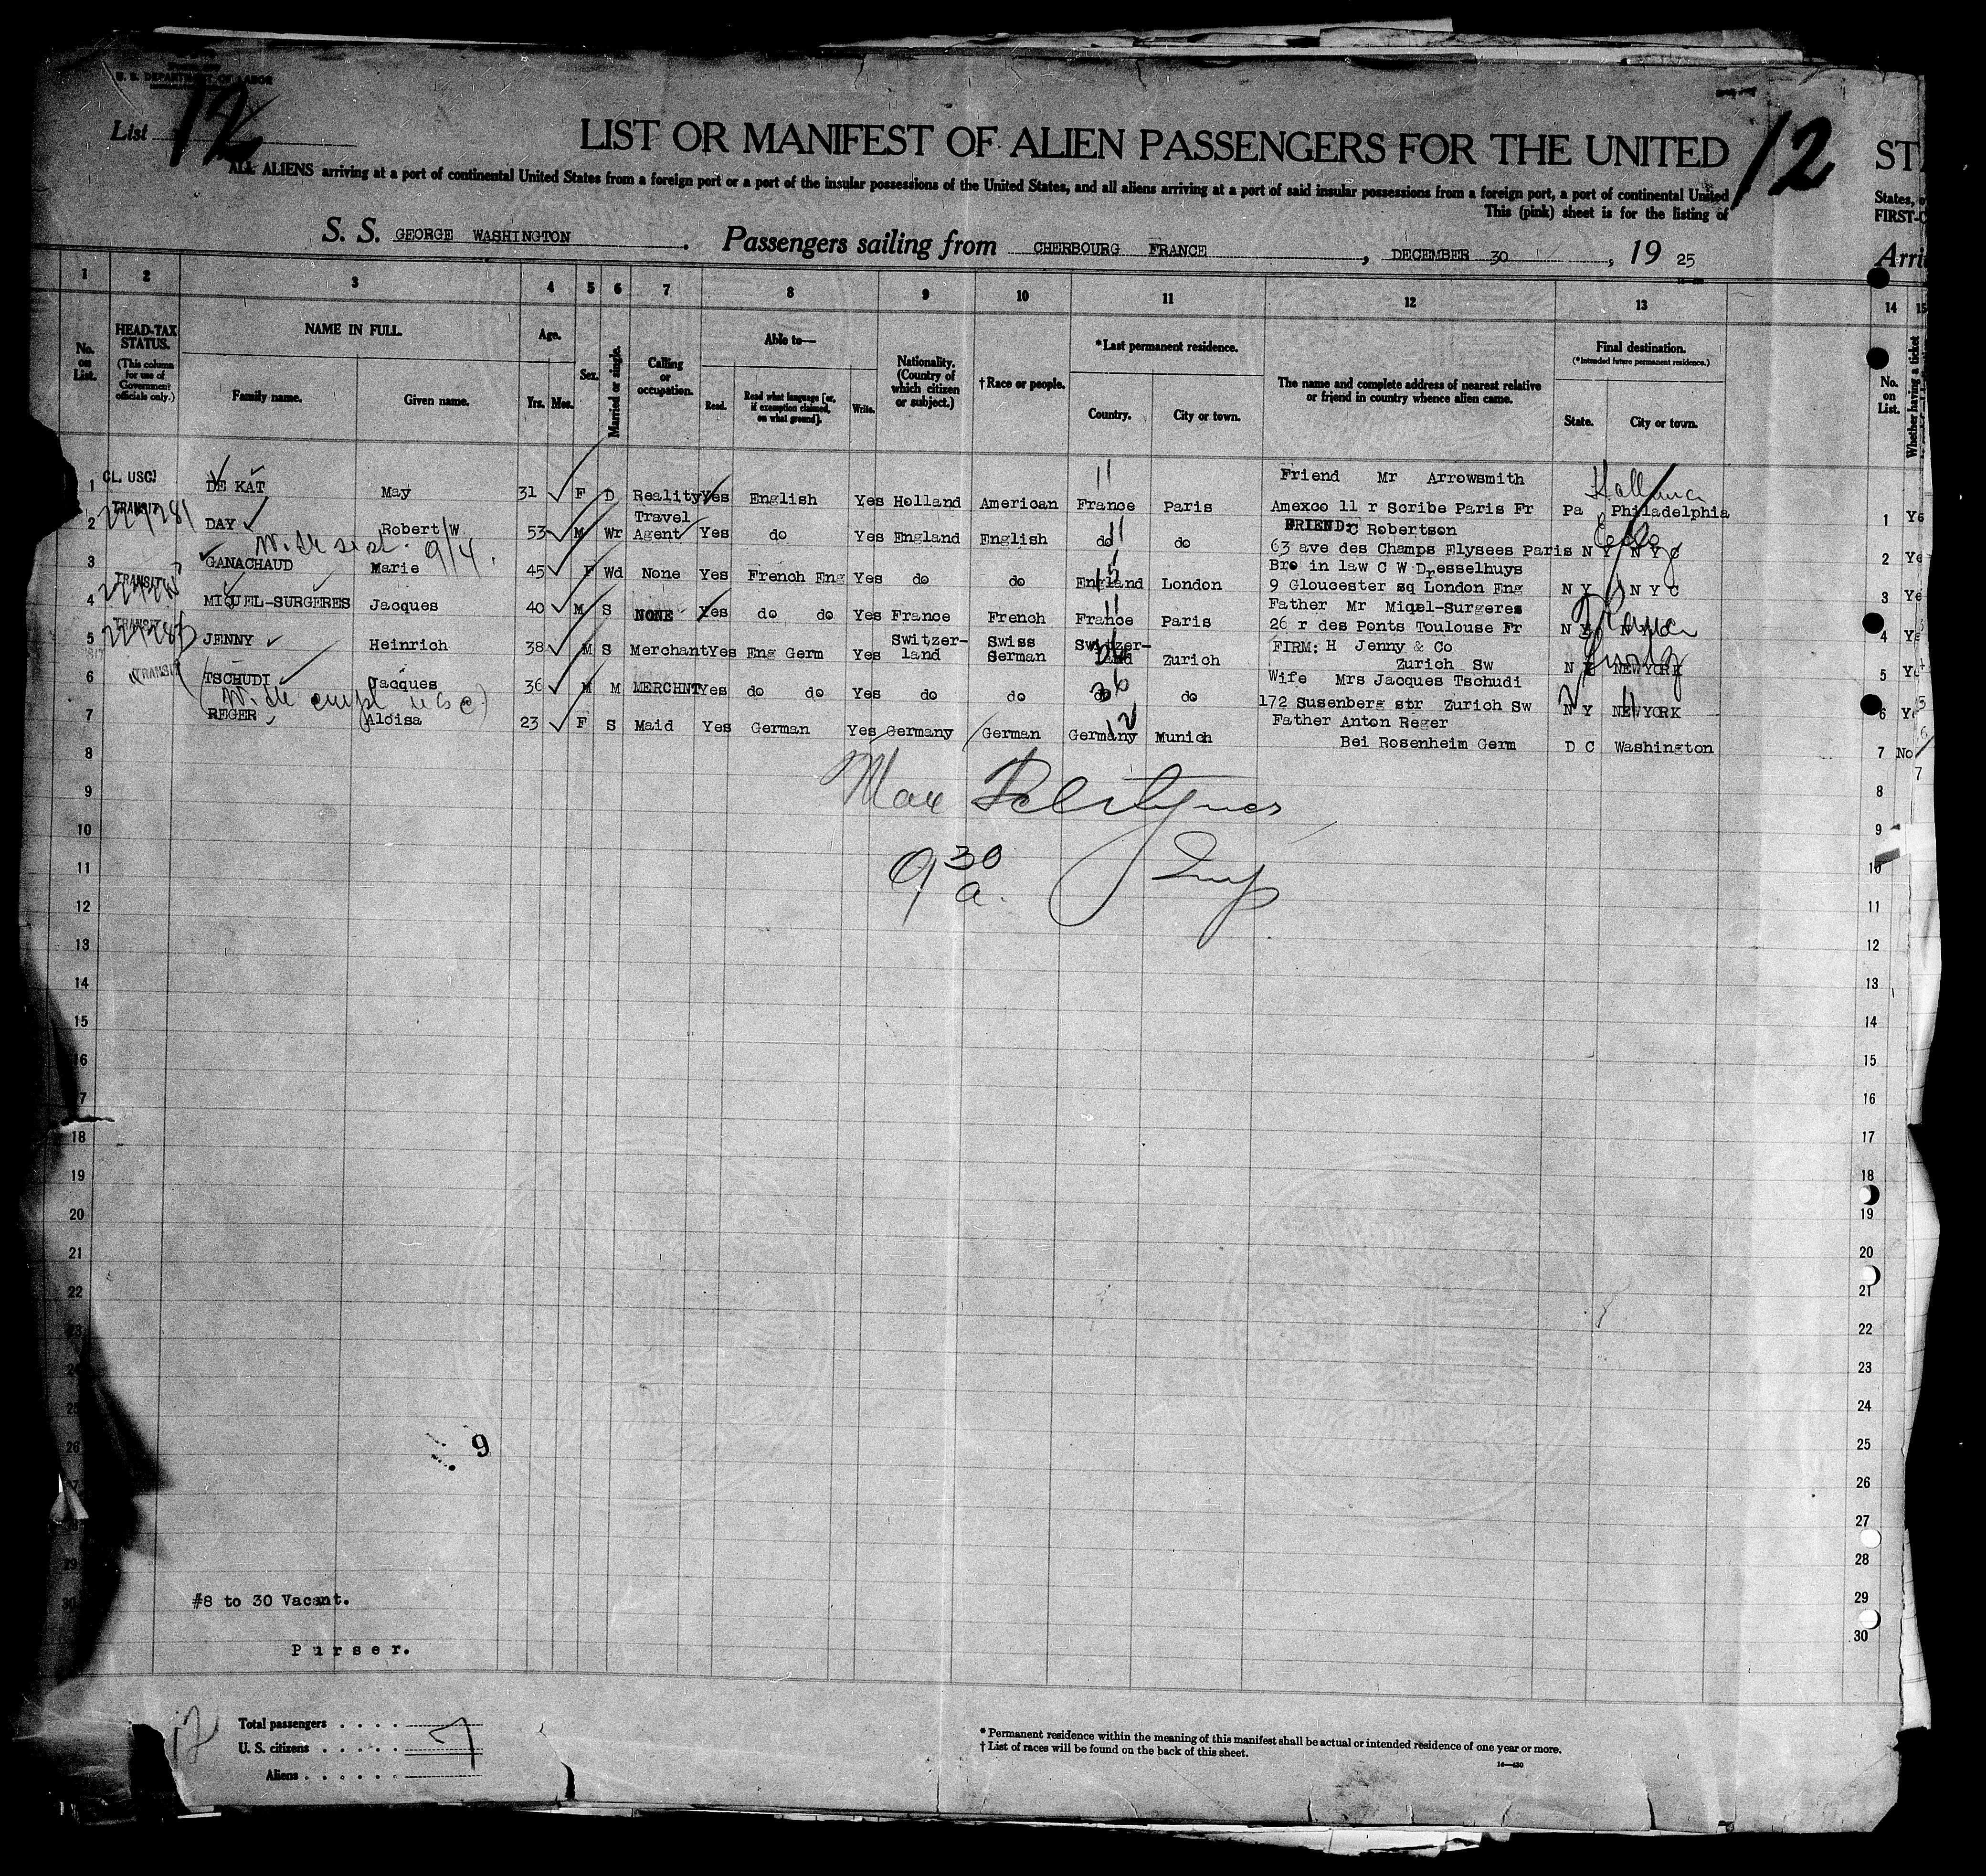 U. S. DEPARTMENT OF LABOR
List 12
LIST OR MANIFEST OF ALIEN PASSENGERS FOR THE UNITED 12 ST
ALL ALIENS arriving at a port of continental United States from a foreign port or a port of the insular possessions of the United States, and all aliens arriving at a port of said insular possessions from a foreign port, a port of continental United States,
This (pink) sheet is for the listing of FIRST-C
S. S. GEORGE WASHINGTON . Passengers sailing from CHERBOURG FRANCE , DECEMBER 30 , 19 25 Arri
1 2 3 4 5 6 7 8 9 10 11 12 13 14 15
No. on List.
HEAD-TAX STATUS.
(This column for use of Government officials only.)
NAME IN FULL.
Family name. Given name.
Age.
Yrs. Mos.
Sex.
Married or single.
Calling or occupation.
Able to—
Read. Read what language [or, if exemption claimed, on what ground]. Write.
Nationality. (Country of which citizen or subject.)
†Race or people.
*Last permanent residence.
Country. City or town.
The name and complete address of nearest relative or friend in country whence alien came.
Final destination.
(*Intended future permanent residence.)
State. City or town.
No. on List.
Whether having a ticket
CL. USC!
1 DE KAT May 31 F D Reality Yes English Yes Holland American France Paris Friend Mr Arrowsmith
Amexco 11 r Scribe Paris Fr Pa Philadelphia 1 Ye
TRANSIT
2 DAY Robert W 53 M Wr Travel Agent Yes do Yes England English do do FRIEND: C Robertson
63 ave des Champs Elysees Paris N Y N Y C 2 Ye
3 GANACHAUD Marie 45 F Wd None Yes French Eng Yes do do England London Bro in law C W Dresselhuys
9 Gloucester sq London Eng N Y N Y C 3 Ye
TRANSIT
4 MIQUEL-SURGERES Jacques 40 M S NONE Yes do do Yes France French France Paris Father Mr Miqel-Surgeres
26 r des Ponts Toulouse Fr N Y 4 Ye
TRANSIT
5 JENNY Heinrich 38 M S Merchant Yes Eng Germ Yes Switzer-land Swiss German Switzer-land Zurich FIRM: H Jenny & Co
Zurich Sw N Y NEWYORK 5 Ye
TRANSIT
6 TSCHUDI Jacques 36 M M MERCHNT Yes do do Yes do do do do Wife Mrs Jacques Tschudi
172 Susenberg str Zurich Sw N Y NEWYORK 6 Ye
7 REGER Aloisa 23 F S Maid Yes German Yes Germany German Germany Munich Father Anton Reger
Bei Rosenheim Germ D C Washington 7 No
8 8
9 9
10 10
9 30 a.
11 11
12 12
13 13
14 14
15 15
16 16
17
18 17
19 18
20 19
21 20
22 21
23 22
24 23
25 24
26 25
9
26
27
28
29 29
30 30
#8 to 30 Vacant.
Purser.
12
Total passengers . . . . 7
U. S. citizens . . . . .
Aliens . . . . . .
* Permanent residence within the meaning of this manifest shall be actual or intended residence of one year or more.
† List of races will be found on the back of this sheet.
14—430